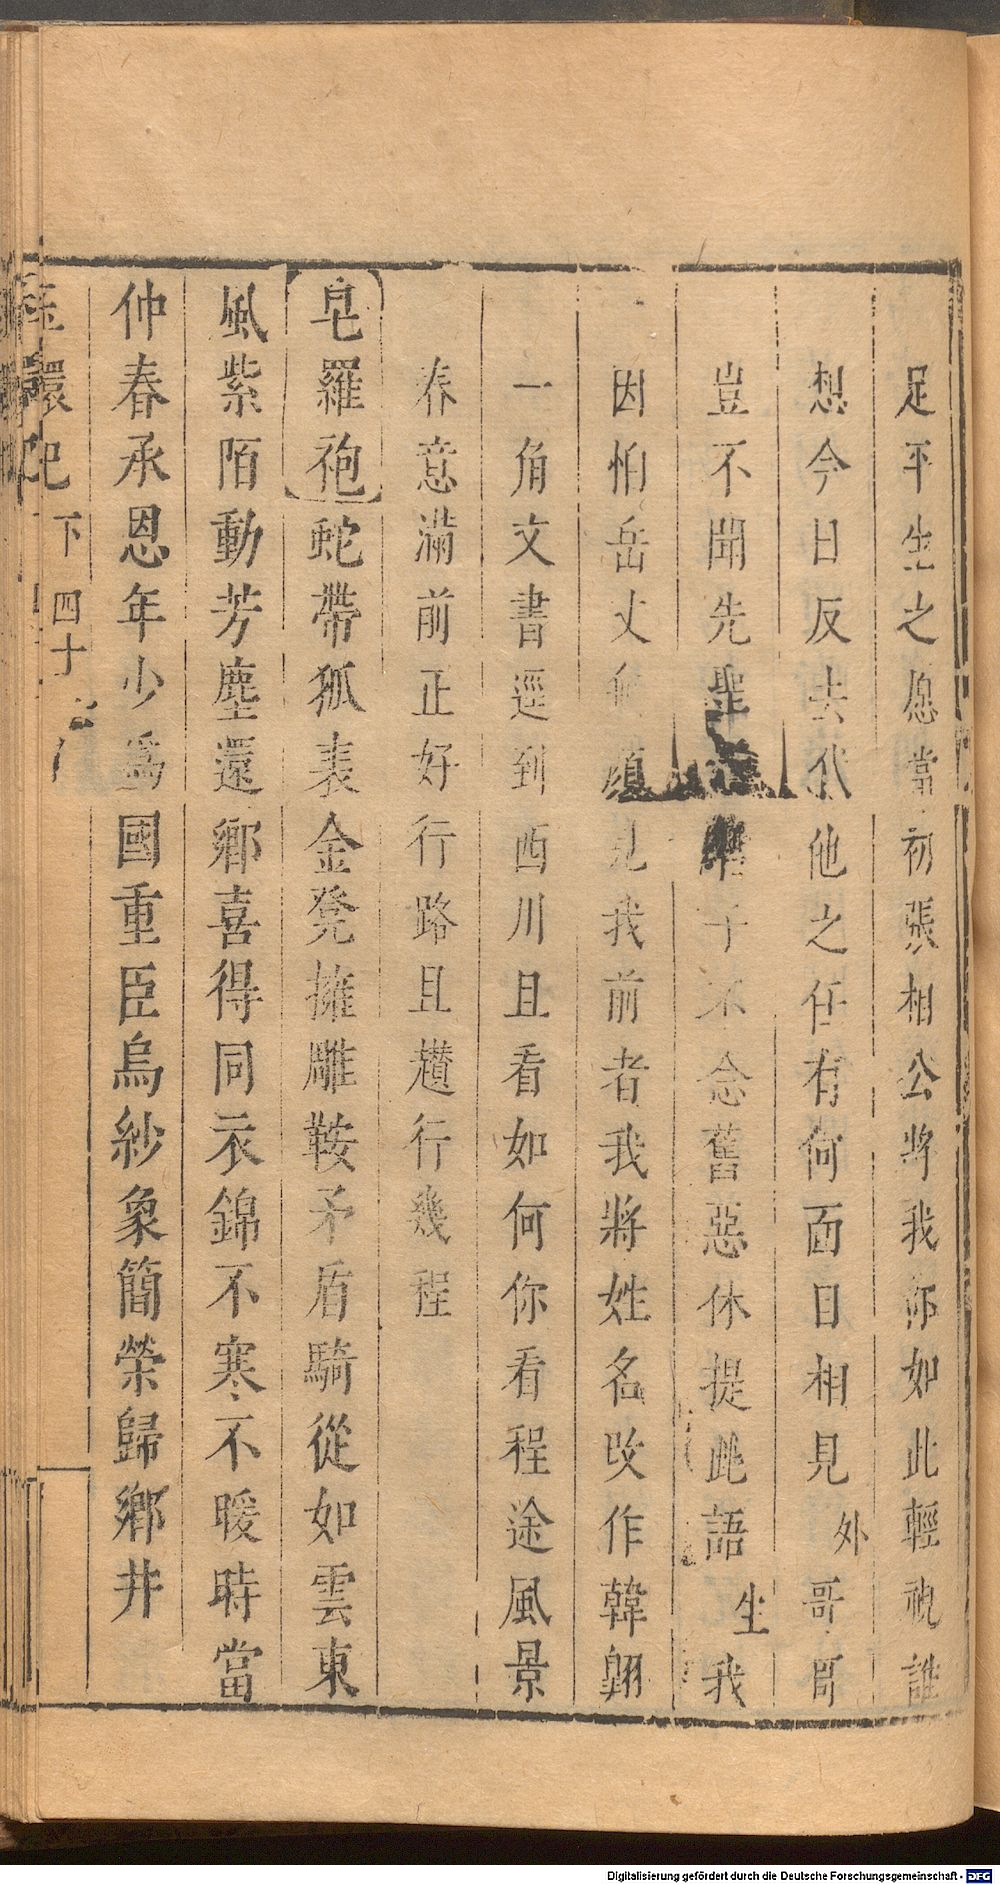 足平生之愿當初張相公將我你如此輕視誰
想今日反去代他之任有何面目相見外哥哥
豈不聞先聖子不念舊惡休提此語生我
因怕岳丈見我前者我將姓名改作韓翃
一角文書逕到西川且看如何你看程途風景
春意滿前正好行路且趲行幾程
皂羅袍蛇帶狐表金凳擁雕鞍矛盾騎從如雲東
風紫陌動芳塵還鄉喜得同衣錦不寒不暖時當
仲春承恩年少為國重臣烏紗象簡榮歸鄉井
玉環記 下 四十
Digitalisierung gefördert durch die Deutsche Forschungsgemeinschaft - DFG